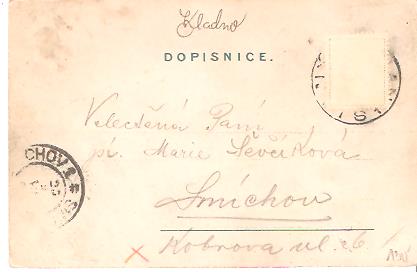 Kladno
DOPISNICE.
Velectěná Paní
pí. Marie Ševčíková
CHOV 1 *
Smíchov
Kobrova ul. č. 6